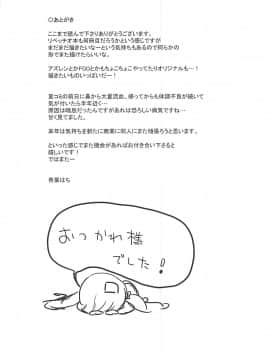 ◎あとがき
ここまで読んで下さりありがとうございます。
リベッチオ本も何冊目だろうかという感じですが
まだまだ描きたいなーという気持ちもあるので何らかの
形でまた描けたらいいな。
アズレンとかFGOとかもちょこちょこやってたりオリジナルも…!
描きたいものいっぱいだー!
夏コミの前日に鼻から大量流血、帰ってからも体調不良が続いて
気が付いたら半年近く…
原因は喘息だったんですがあれは恐ろしい病気ですね…
甘く見てました。
来年は気持ちを新たに
にまた頑張ろうと思います。
といった感じでまた機会があればお付き合い下さると
嬉しいです!
ではまたー
おつかれ様
でした!